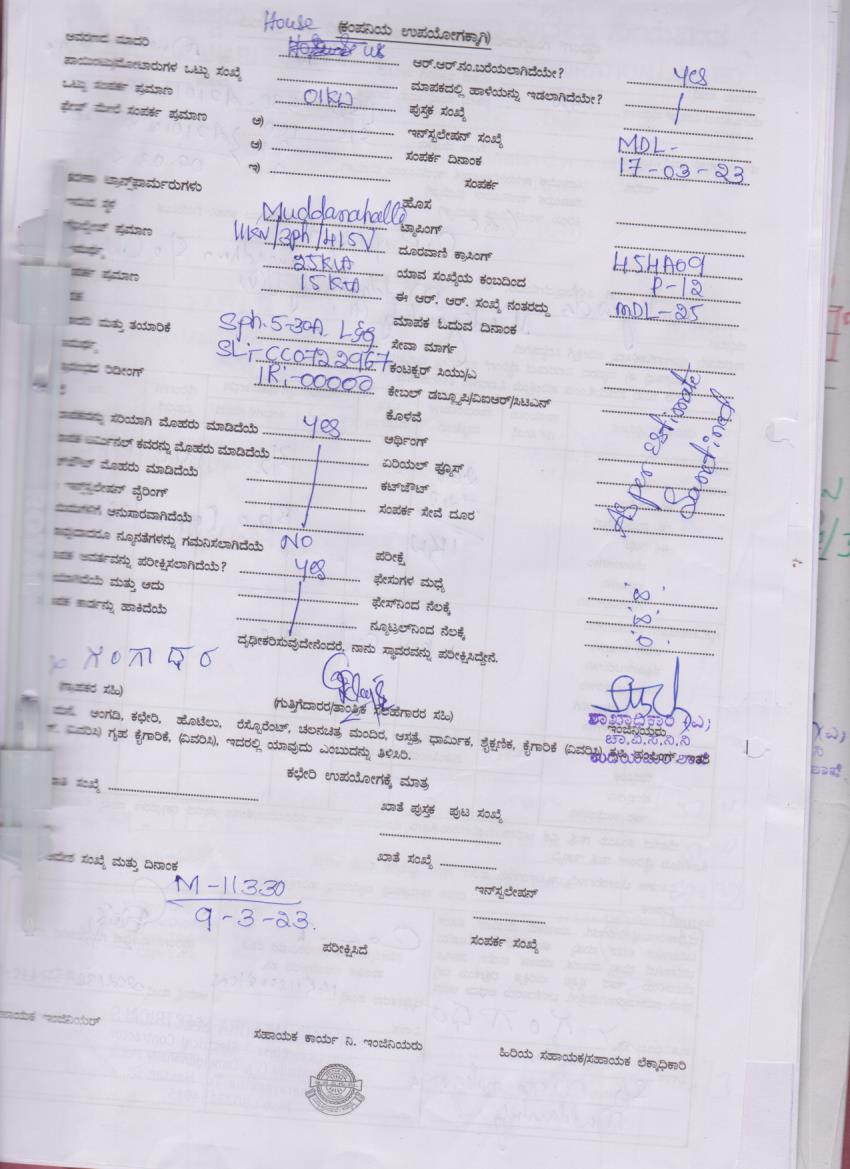 House
(ಕಂಪನಿಯ ಉಪಯೋಗಕ್ಕಾಗಿ)
ಆವರಣದ ಮಾದರಿ
ಆರ್.ಆರ್.ನಂ.ಬರೆಯಲಾಗಿದೆಯೇ? yes
ಪಾಯಿಂಟ್ಸು/ಮೋಟಾರುಗಳ ಒಟ್ಟು ಸಂಖ್ಯೆ
ಮಾಪಕದಲ್ಲಿ ಹಾಳೆಯನ್ನು ಇಡಲಾಗಿದೆಯೇ?
ಒಟ್ಟು ಸಂಪರ್ಕ ಪ್ರಮಾಣ 01KW
ಪುಸ್ತಕ ಸಂಖ್ಯೆ
ಫೇಸ್ ಮೇಲೆ ಸಂಪರ್ಕ ಪ್ರಮಾಣ ಅ)
ಇನ್‌ಸ್ಟಲೇಷನ್ ಸಂಖ್ಯೆ MDL-
ಆ)
ಸಂಪರ್ಕ ದಿನಾಂಕ 17-03-23
ಇ)
ಸಂಪರ್ಕ
ಟ್ರಾನ್ಸ್‌ಫಾರ್ಮರುಗಳು
ಹೊಸ
ಸ್ಥಳ Muddanahalli
ಟ್ಯಾಪಿಂಗ್
ಪ್ರಮಾಣ 11KV/3ph/415V
ದೂರವಾಣಿ ಕ್ರಾಸಿಂಗ್
25KVA
ಯಾವ ಸಂಖ್ಯೆಯ ಕಂಬದಿಂದ 454A09 P-12
ಪ್ರಮಾಣ 15KVA
ಈ ಆರ್. ಆರ್. ಸಂಖ್ಯೆ ನಂತರದ್ದು MDL-25
ಮಾಪಕ ಓದುವ ದಿನಾಂಕ
ಮತ್ತು ತಯಾರಿಕೆ Sph. 5-30A L&G
ಸೇವಾ ಮಾರ್ಗ
SL:- CC0722967
ಕಂಟಕ್ಟರ್ ಸಿಯು/ಎ
ರಿಡೀಂಗ್ IR:-00000
ಕೇಬಲ್ ಡಬ್ಲ್ಯೂಪಿ/ವಿಐಆರ್/ಸಿಟಿಎನ್
ಕೊಳವೆ
As per estimate
ಸರಿಯಾಗಿ ಮೊಹರು ಮಾಡಿದೆಯೆ yes
ಆರ್ಥಿಂಗ್
ಟರ್ಮಿನಲ್ ಕವರನ್ನು ಮೊಹರು ಮಾಡಿದೆಯೆ
ಏರಿಯಲ್ ಫ್ಯೂಸ್
ಮೊಹರು ಮಾಡಿದೆಯೆ
ಕಟ್‌ಔಟ್
ಇನ್‌ಸ್ಟಲೇಷನ್ ವೈರಿಂಗ್
ಸಂಪರ್ಕ ಸೇವೆ ದೂರ
ಅನುಸಾರವಾಗಿದೆಯೆ
ನ್ಯೂನತೆಗಳನ್ನು ಗಮನಿಸಲಾಗಿದೆಯೆ NO
ಪರೀಕ್ಷೆ
ಆವರ್ತವನ್ನು ಪರೀಕ್ಷಿಸಲಾಗಿದೆಯೆ? yes
ಫೇಸುಗಳ ಮಧ್ಯೆ
ಮತ್ತು ಅದು
ಫೇಸ್‌ನಿಂದ ನೆಲಕ್ಕೆ
ಕಾರ್ಡನ್ನು ಹಾಕಿದೆಯೆ
ನ್ಯೂಟ್ರಲ್‌ನಿಂದ ನೆಲಕ್ಕೆ
ದೃಢೀಕರಿಸುವುದೇನೆಂದರೆ, ನಾನು ಸ್ಥಾವರವನ್ನು ಪರೀಕ್ಷಿಸಿದ್ದೇನೆ.
ಗಂಗಾಧರ
(ಗ್ರಾಹಕರ ಸಹಿ)
(ಗುತ್ತಿಗೆದಾರರ/ತಾಂತ್ರಿಕ ಸಲಹೆಗಾರರ ಸಹಿ)
ಇಂಜಿನಿಯರು
ಅಂಗಡಿ, ಕಛೇರಿ, ಹೊಟೆಲು, ರೆಸ್ಟೊರೆಂಟ್, ಚಲನಚಿತ್ರ ಮಂದಿರ, ಆಸ್ಪತ್ರೆ, ಧಾರ್ಮಿಕ, ಶೈಕ್ಷಣಿಕ, ಕೈಗಾರಿಕೆ (ವಿವರಿಸಿ)
ಗೃಹ ಕೈಗಾರಿಕೆ, (ವಿವರಿಸಿ), ಇದರಲ್ಲಿ ಯಾವುದು ಎಂಬುದನ್ನು ತಿಳಿಸಿರಿ.
ಕಛೇರಿ ಉಪಯೋಗಕ್ಕೆ ಮಾತ್ರ
ಸಂಖ್ಯೆ
ಖಾತೆ ಪುಸ್ತಕ ಪುಟ ಸಂಖ್ಯೆ
ಸಂಖ್ಯೆ ಮತ್ತು ದಿನಾಂಕ
ಖಾತೆ ಸಂಖ್ಯೆ
M-11330
9-3-23.
ಇನ್‌ಸ್ಟಲೇಷನ್
ಪರೀಕ್ಷಿಸಿದೆ
ಸಂಪರ್ಕ ಸಂಖ್ಯೆ
ಸಹಾಯಕ ಇಂಜಿನಿಯರ್
ಸಹಾಯಕ ಕಾರ್ಯ ನಿ. ಇಂಜಿನಿಯರು
ಹಿರಿಯ ಸಹಾಯಕ/ಸಹಾಯಕ ಲೆಕ್ಕಾಧಿಕಾರಿ